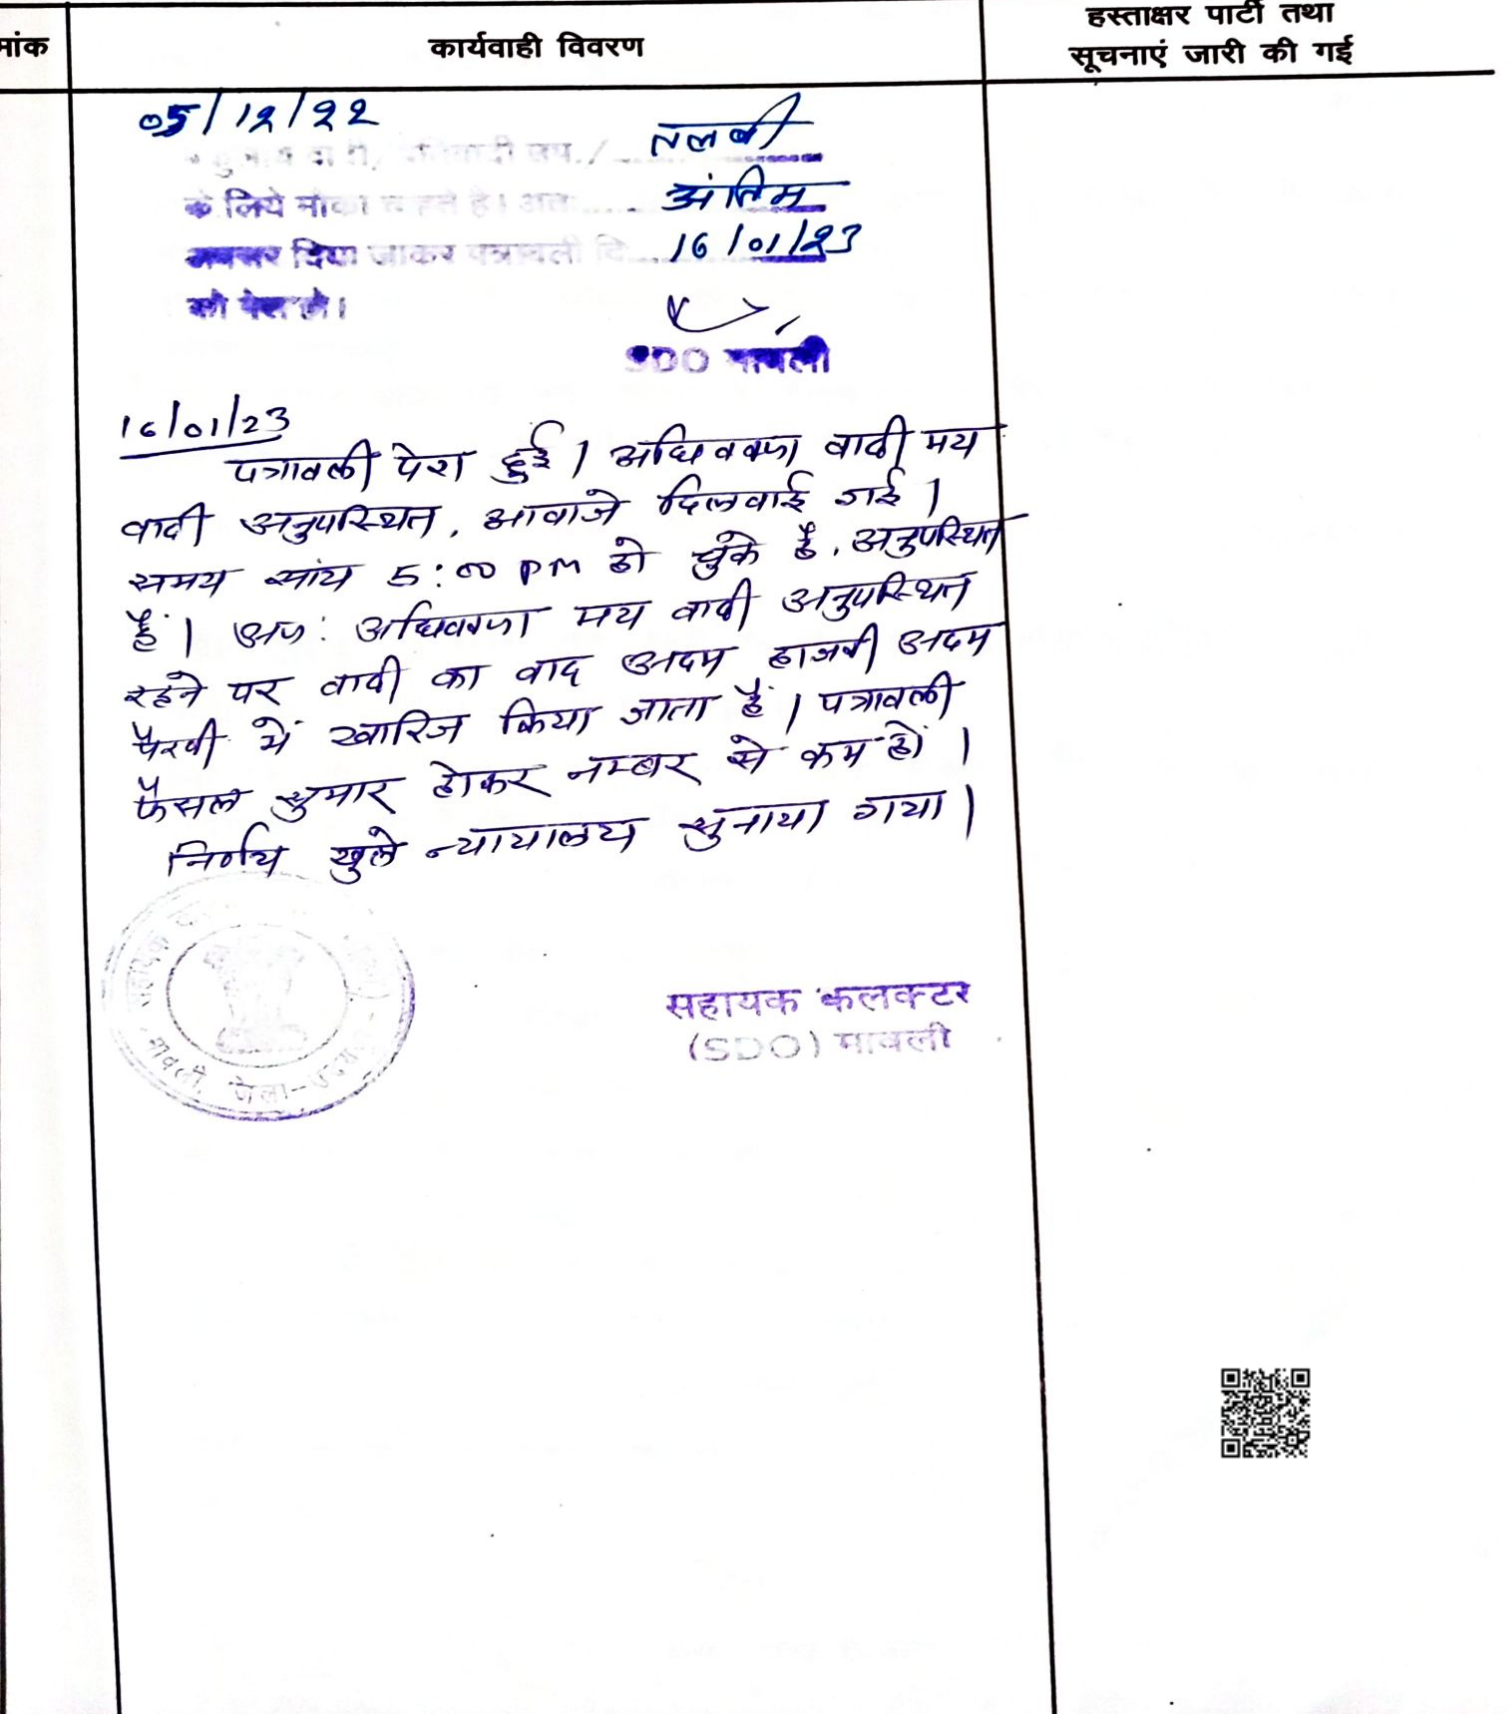 मांक
कार्यवाही विवरण
हस्ताक्षर पार्टी तथा
सूचनाएं जारी की गई
05/12/22
तलबी
के लिये मौका चाहते है। अतः ..... अंतिम
अवसर दिया जाकर पत्रावली दि ..... 16/01/23
को पेश हो।
SDO मावली
16/01/23
पत्रावली पेश हुई। अधिवक्ता वादी मय
वादी अनुपस्थित, आवाजे दिलवाई गई।
समय सांय 5:00 pm हो चुके है, अनुपस्थित
है। अतः अधिवक्ता मय वादी अनुपस्थित
रहने पर वादी का वाद अदम हाजरी अदम
पैरवी में खारिज किया जाता है। पत्रावली
फैसल शुमार होकर नम्बर से कम हो।
निर्णय खुले न्यायालय सुनाया गया।
सहायक कलक्टर
(SDO) मावली
मावली, जिला-